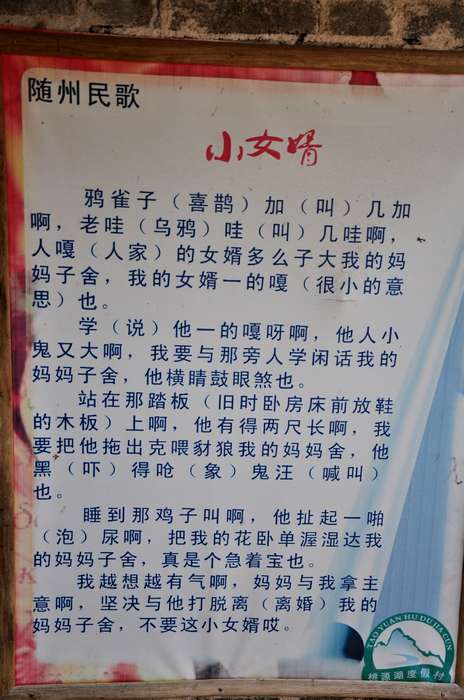 随州民歌
小女婿
鸦雀子（喜鹊）加（叫）几加
啊，老哇（乌鸦）哇（叫）几哇啊，
人嘎（人家）的女婿多么子大我的妈
妈子舍，我的女婿一的嘎（很小的意
思）也。
学（说）他一的嘎呀啊，他人小
鬼又大啊，我要与那旁人学闲话我的
妈妈子舍，他横睛鼓眼煞也。
站在那踏板（旧时卧房床前放鞋
的木板）上啊，他有得两尺长啊，我
要把他拖出克喂豺狼我的妈妈舍，他
黑（吓）得呛（象）鬼汪（喊叫）
也。
睡到那鸡子叫啊，他扯起一啪
（泡）尿啊，把我的花卧单渥湿达我
的妈妈子舍，真是个急着宝也。
我越想越有气啊，妈妈与我拿主
意啊，坚决与他打脱离（离婚）我的
妈妈子舍，不要这小女婿哎。
TAO YUAN HU DU JIA CUN
桃源湖度假村